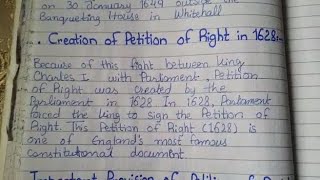 on 30 January 1649 outside the
Banqueting House in Whitehall
. Creation of Petition of Right in 1628:-
Because of this fight between King
Charles I with Parliament, Petition
of Right was created by the
Parliament in 1628. In 1628, Parliament
forced the king to sign the Petition of
Right. This Petition of Right (1628) is
one of England's most famous
constitutional document
Important Provision of Petition of